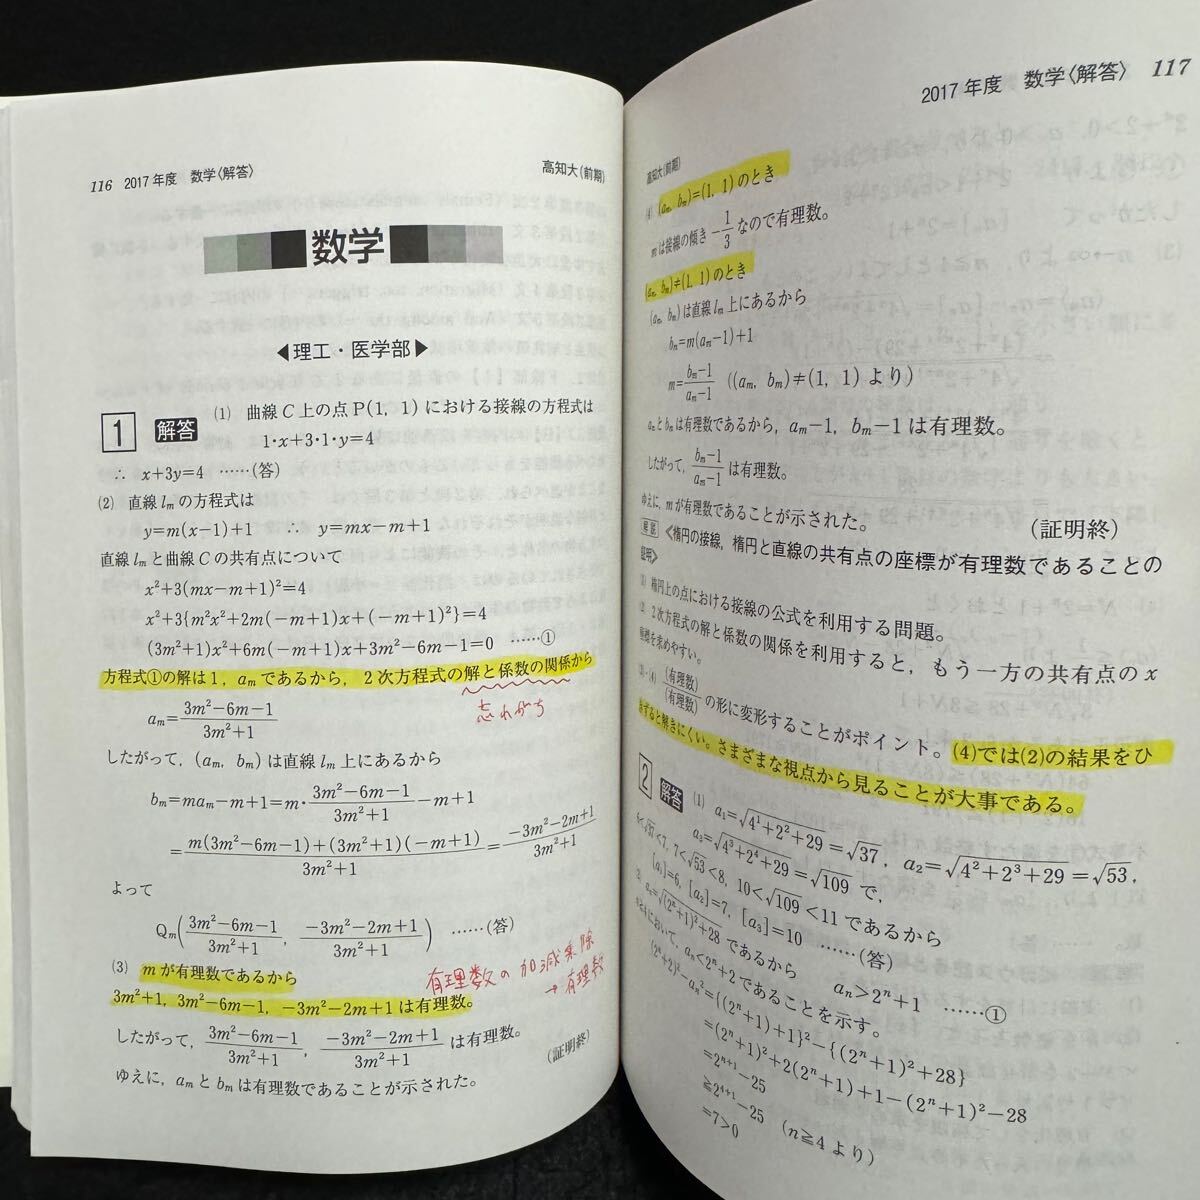 116 2017年度 数学〈解答〉 高知大(前期)
数学
◀理工・医学部▶
1 解答 (1) 曲線 C 上の点 P(1, 1) における接線の方程式は
1・x+3・1・y=4
∴ x+3y=4 ……(答)
(2) 直線 lₘ の方程式は
y=m(x−1)+1 ∴ y=mx−m+1
直線 lₘ と曲線 C の共有点について
x²+3(mx−m+1)²=4
x²+3{m²x²+2m(−m+1)x+(−m+1)²}=4
(3m²+1)x²+6m(−m+1)x+3m²−6m−1=0 ……①
方程式①の解は 1, aₘ であるから, 2次方程式の解と係数の関係から
忘れがち
aₘ=(3m²−6m−1)/(3m²+1)
したがって, (aₘ, bₘ) は直線 lₘ 上にあるから
bₘ=maₘ−m+1=m・(3m²−6m−1)/(3m²+1)−m+1
=(m(3m²−6m−1)+(3m²+1)(−m+1))/(3m²+1)=(−3m²−2m+1)/(3m²+1)
よって
Qₘ((3m²−6m−1)/(3m²+1), (−3m²−2m+1)/(3m²+1)) ……(答)
(3) m が有理数であるから
有理数の加減乗除
→有理数
3m²+1, 3m²−6m−1, −3m²−2m+1 は有理数。
したがって, (3m²−6m−1)/(3m²+1), (−3m²−2m+1)/(3m²+1) は有理数。
ゆえに, aₘ と bₘ は有理数であることが示された。 (証明終)
2017年度 数学〈解答〉 117
高知大(前期)
(4) (aₘ, bₘ)=(1, 1) のとき
m は接線の傾き −1/3 なので有理数。
(aₘ, bₘ)≠(1, 1) のとき
(aₘ, bₘ) は直線 lₘ 上にあるから
bₘ=m(aₘ−1)+1
m=(bₘ−1)/(aₘ−1) ((aₘ, bₘ)≠(1, 1) より)
aₘ と bₘ は有理数であるから, aₘ−1, bₘ−1 は有理数。
したがって, (bₘ−1)/(aₘ−1) は有理数。
ゆえに, m が有理数であることが示された。 (証明終)
解説 ≪楕円の接線, 楕円と直線の共有点の座標が有理数であることの
証明≫
(1) 楕円上の点における接線の公式を利用する問題。
(2) 2次方程式の解と係数の関係を利用すると, もう一方の共有点の x
座標を求めやすい。
(3)・(4) (有理数)/(有理数) の形に変形することがポイント。(4)では(2)の結果をひ
きずると解きにくい。さまざまな視点から見ることが大事である。
2 解答 (1) a₁=√(4¹+2²+29)=√37, a₂=√(4²+2³+29)=√53,
a₃=√(4³+2⁴+29)=√109 で,
6<√37<7, 7<√53<8, 10<√109<11 であるから
[a₁]=6, [a₂]=7, [a₃]=10 ……(答)
(2) aₙ=√((2ⁿ+1)²+28) であるから aₙ>2ⁿ+1 ……①
n≧4 において, aₙ<2ⁿ+2 であることを示す。
(2ⁿ+2)²−aₙ²={(2ⁿ+1)+1}²−{(2ⁿ+1)²+28}
=(2ⁿ+1)²+2(2ⁿ+1)+1−(2ⁿ+1)²−28
=2ⁿ⁺¹−25
≧2⁴⁺¹−25 (n≧4 より)
=7>0